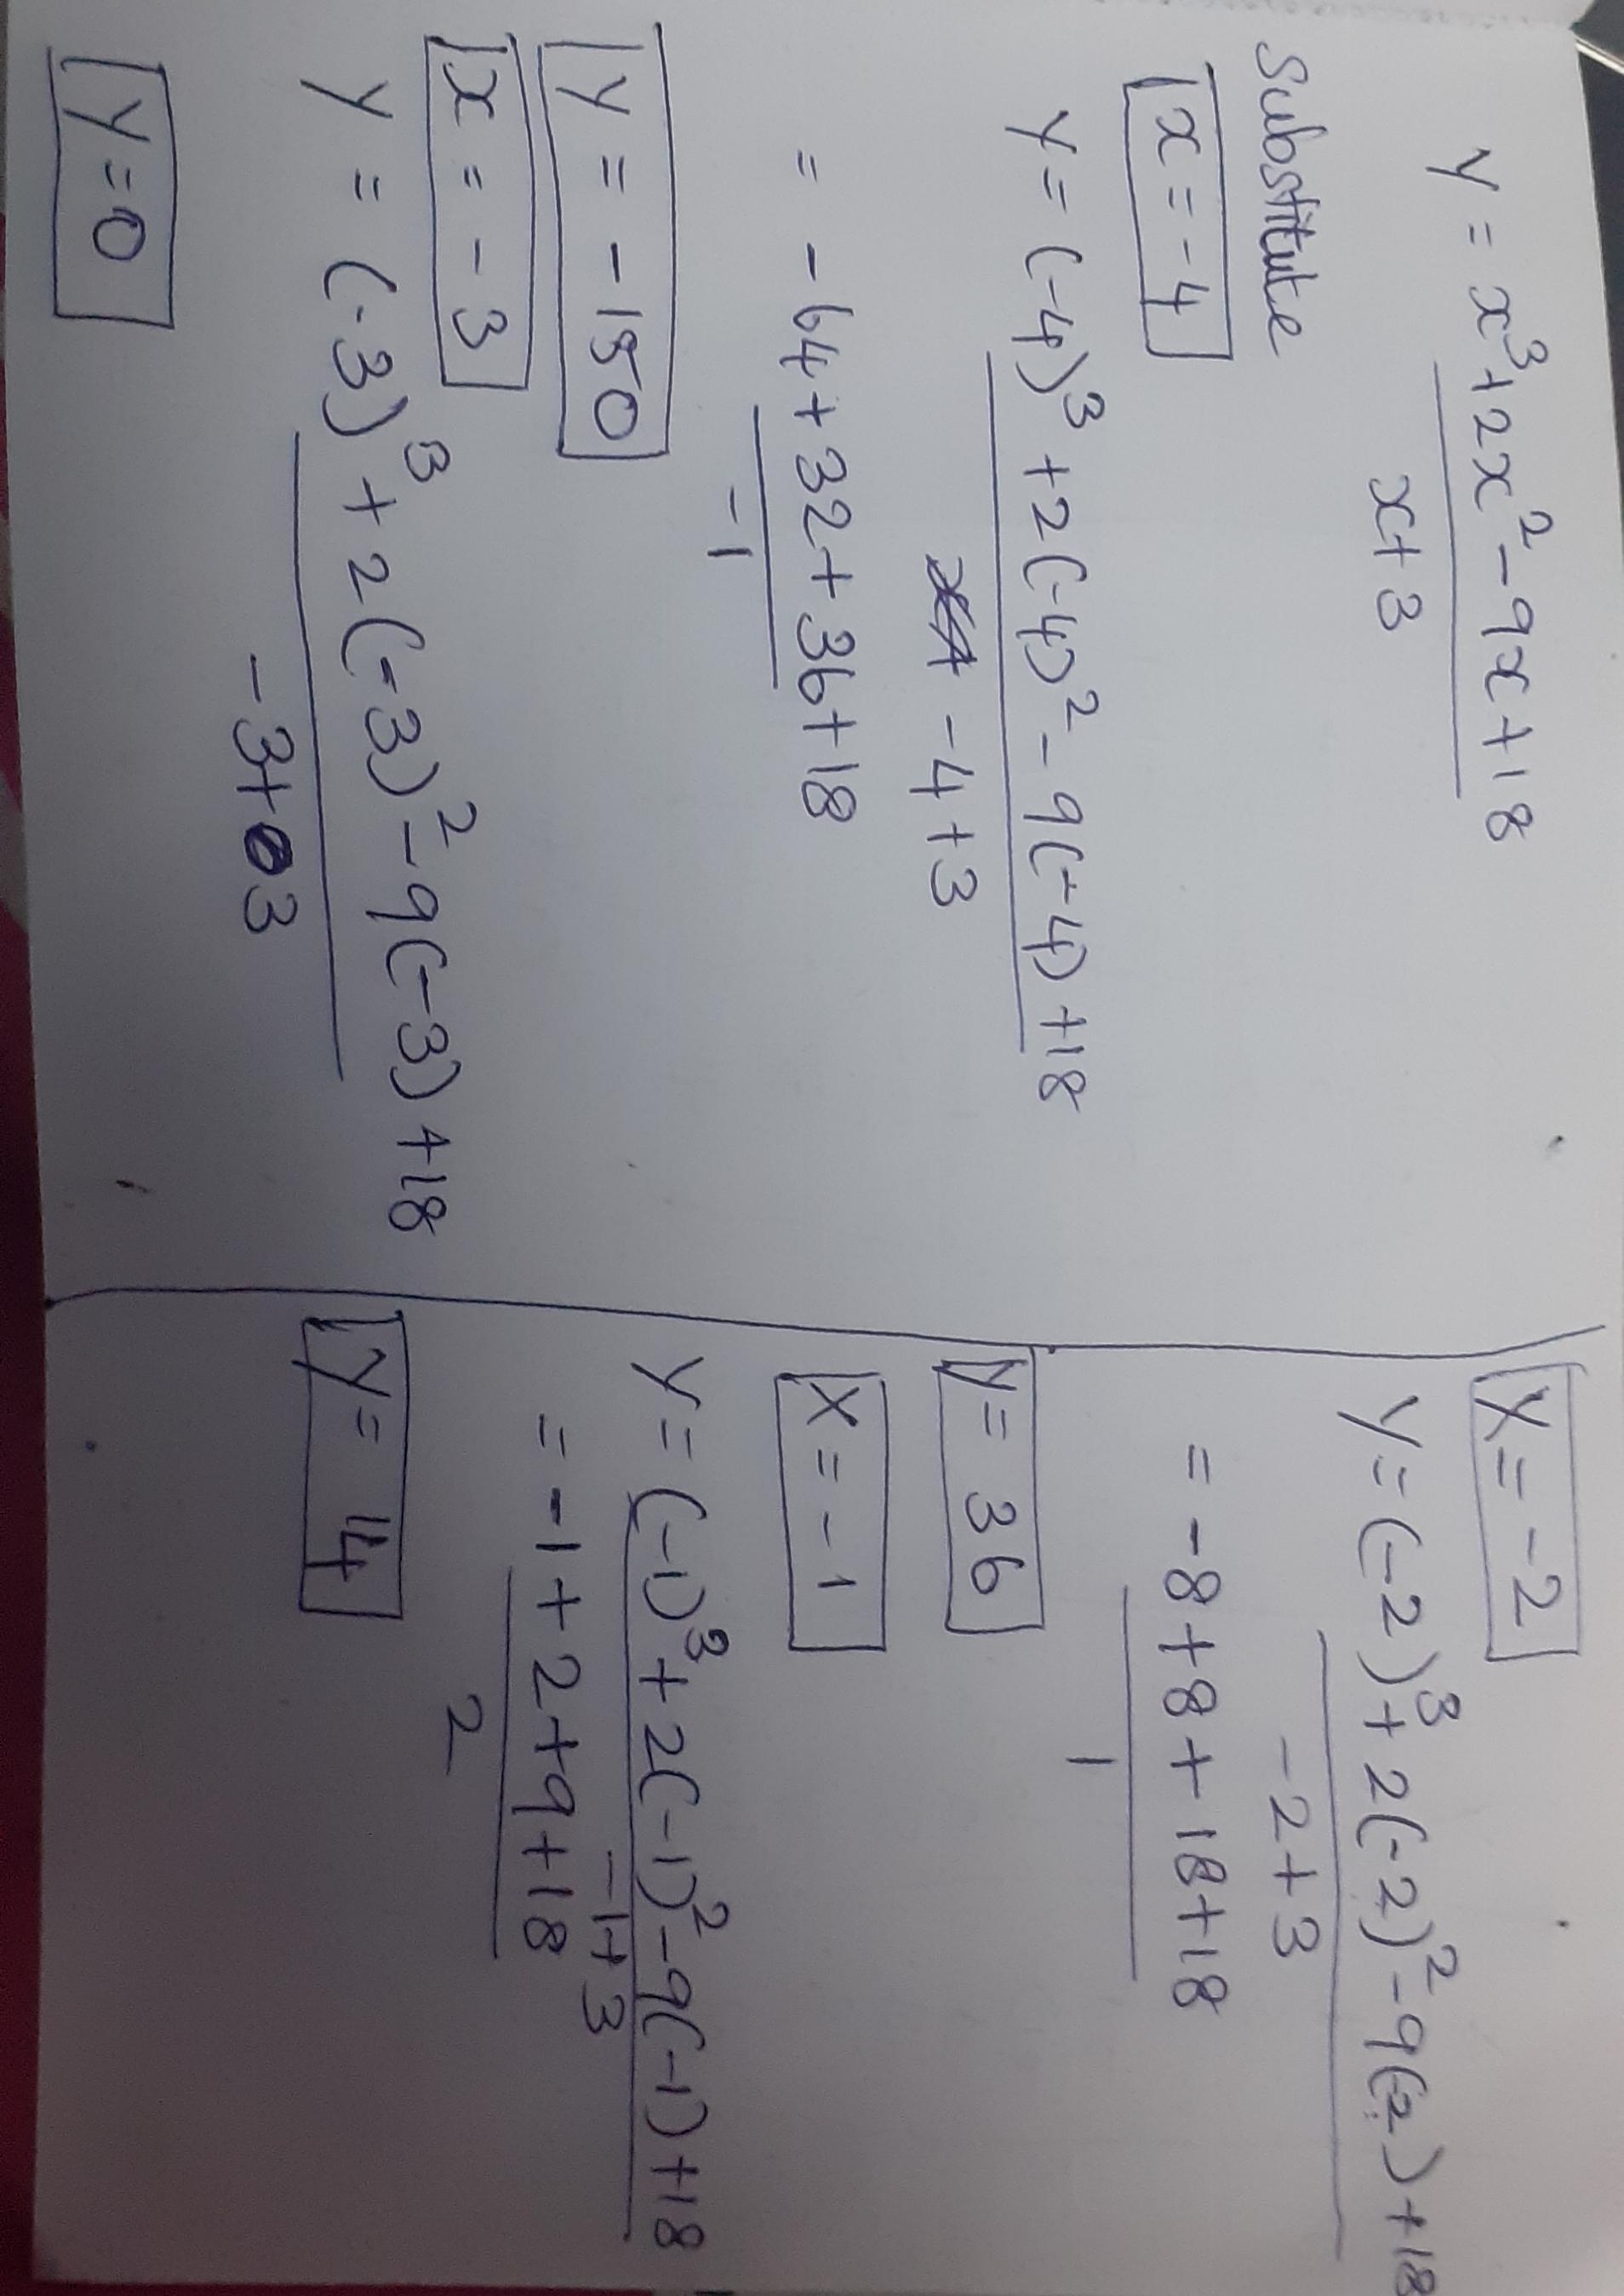 y = x³+2x²-9x+18
x+3
Substitute
x = -4
y = (-4)³+2(-4)²-9(-4)+18
-4+3
= -64+32+36+18
-1
y = -150
x = -3
y = (-3)³+2(-3)²-9(-3)+18
-3+3
y=0
x = -2
y=(-2)³+2(-2)²-9(-2)+18
-2+3
= -8+8+18+18
1
y= 36
x = -1
y=(-1)³+2(-1)²-9(-1)+18
-1+3
= -1+2+9+18
2
y= 14